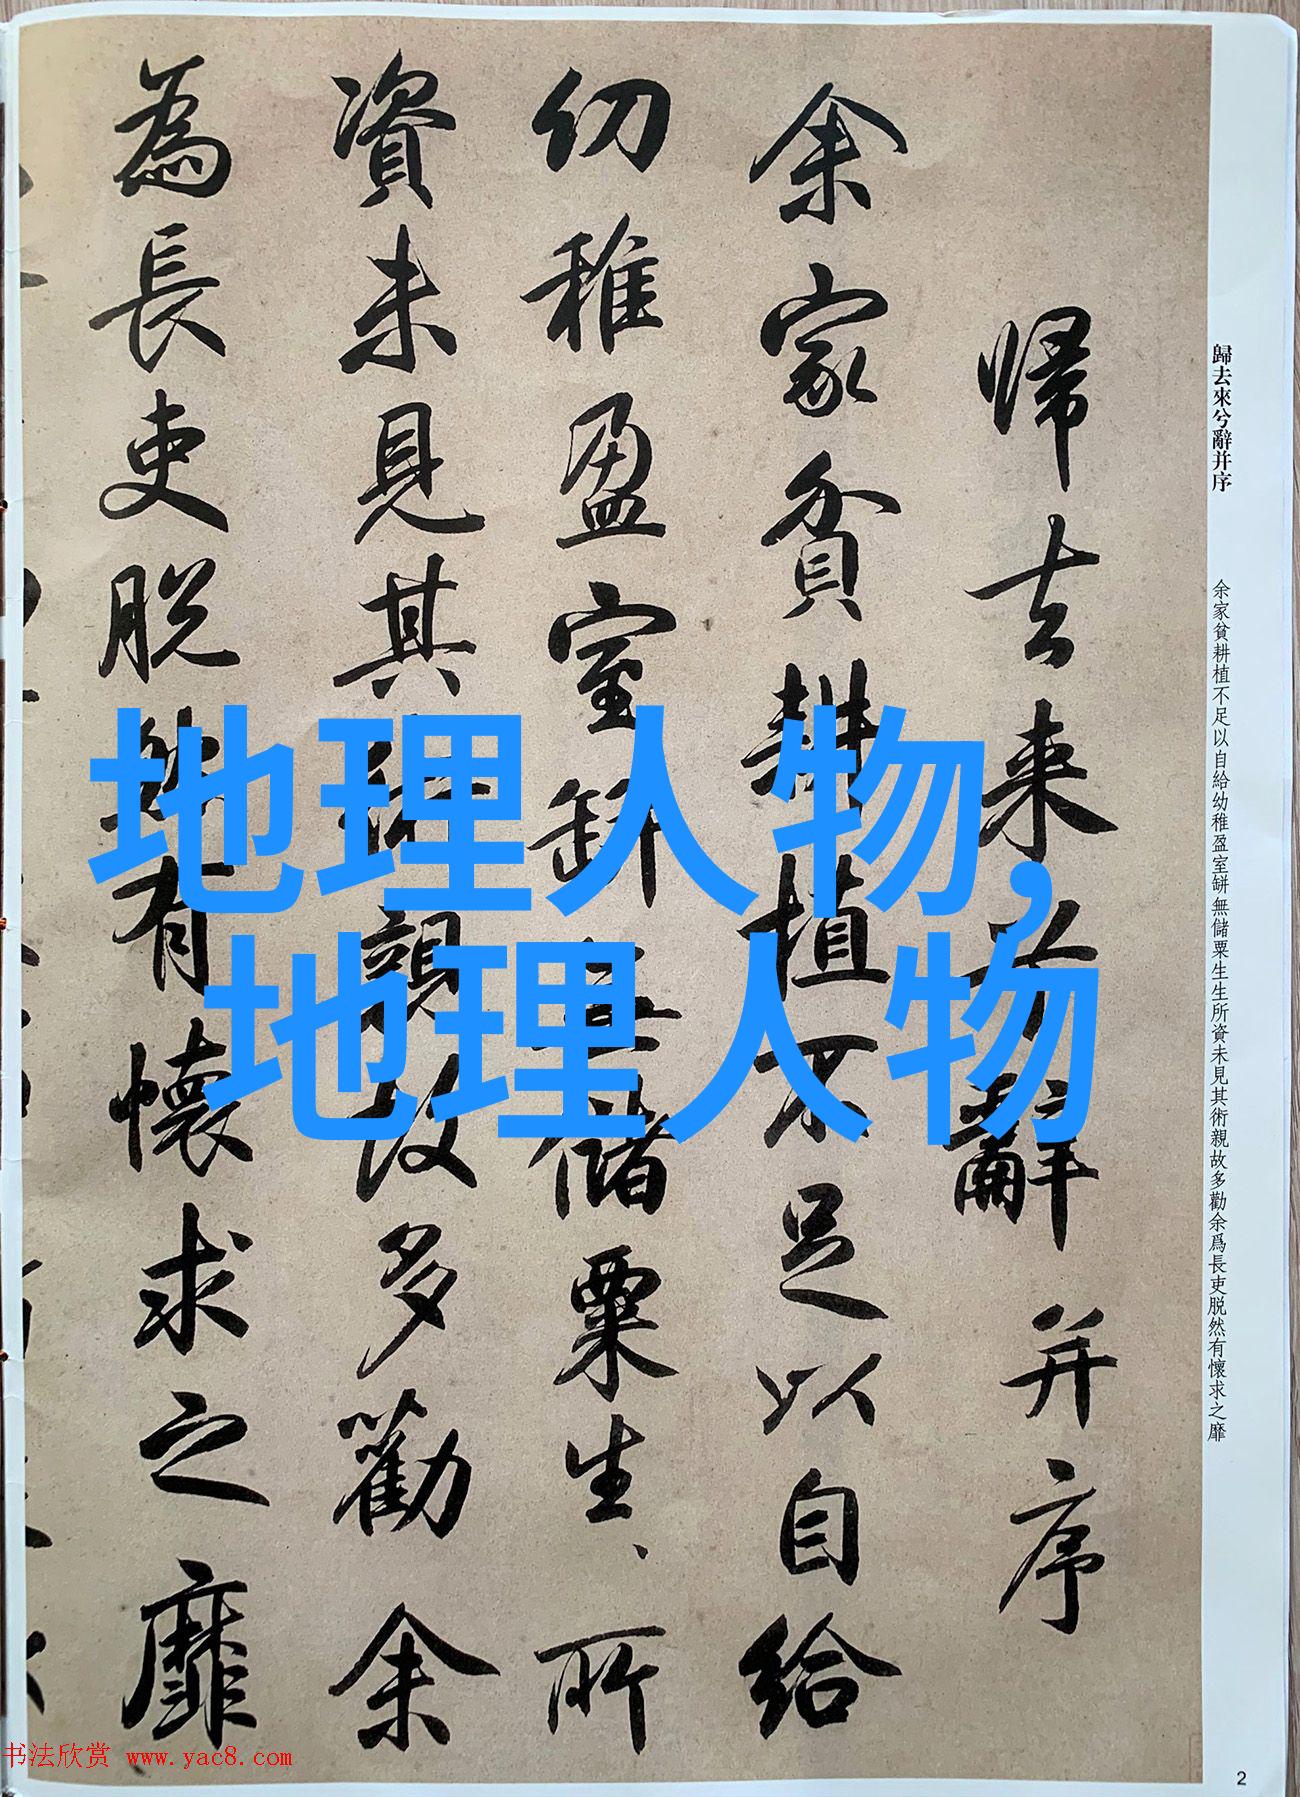 歸去來兮辭并序
余家貧耕植不足以自給幼稚盈室缾無儲粟生生所資未見其術親故多勸余爲長吏脱然有懷求之靡
歸去来兮辭并序
余家貧耕植不足以自給
幼稚盈室缾無儲粟生、所
資未見其術親故多勸余
為長吏脱然有懷求之靡
地理人物,
地理人物
书法欣赏 www.yac8.com
2